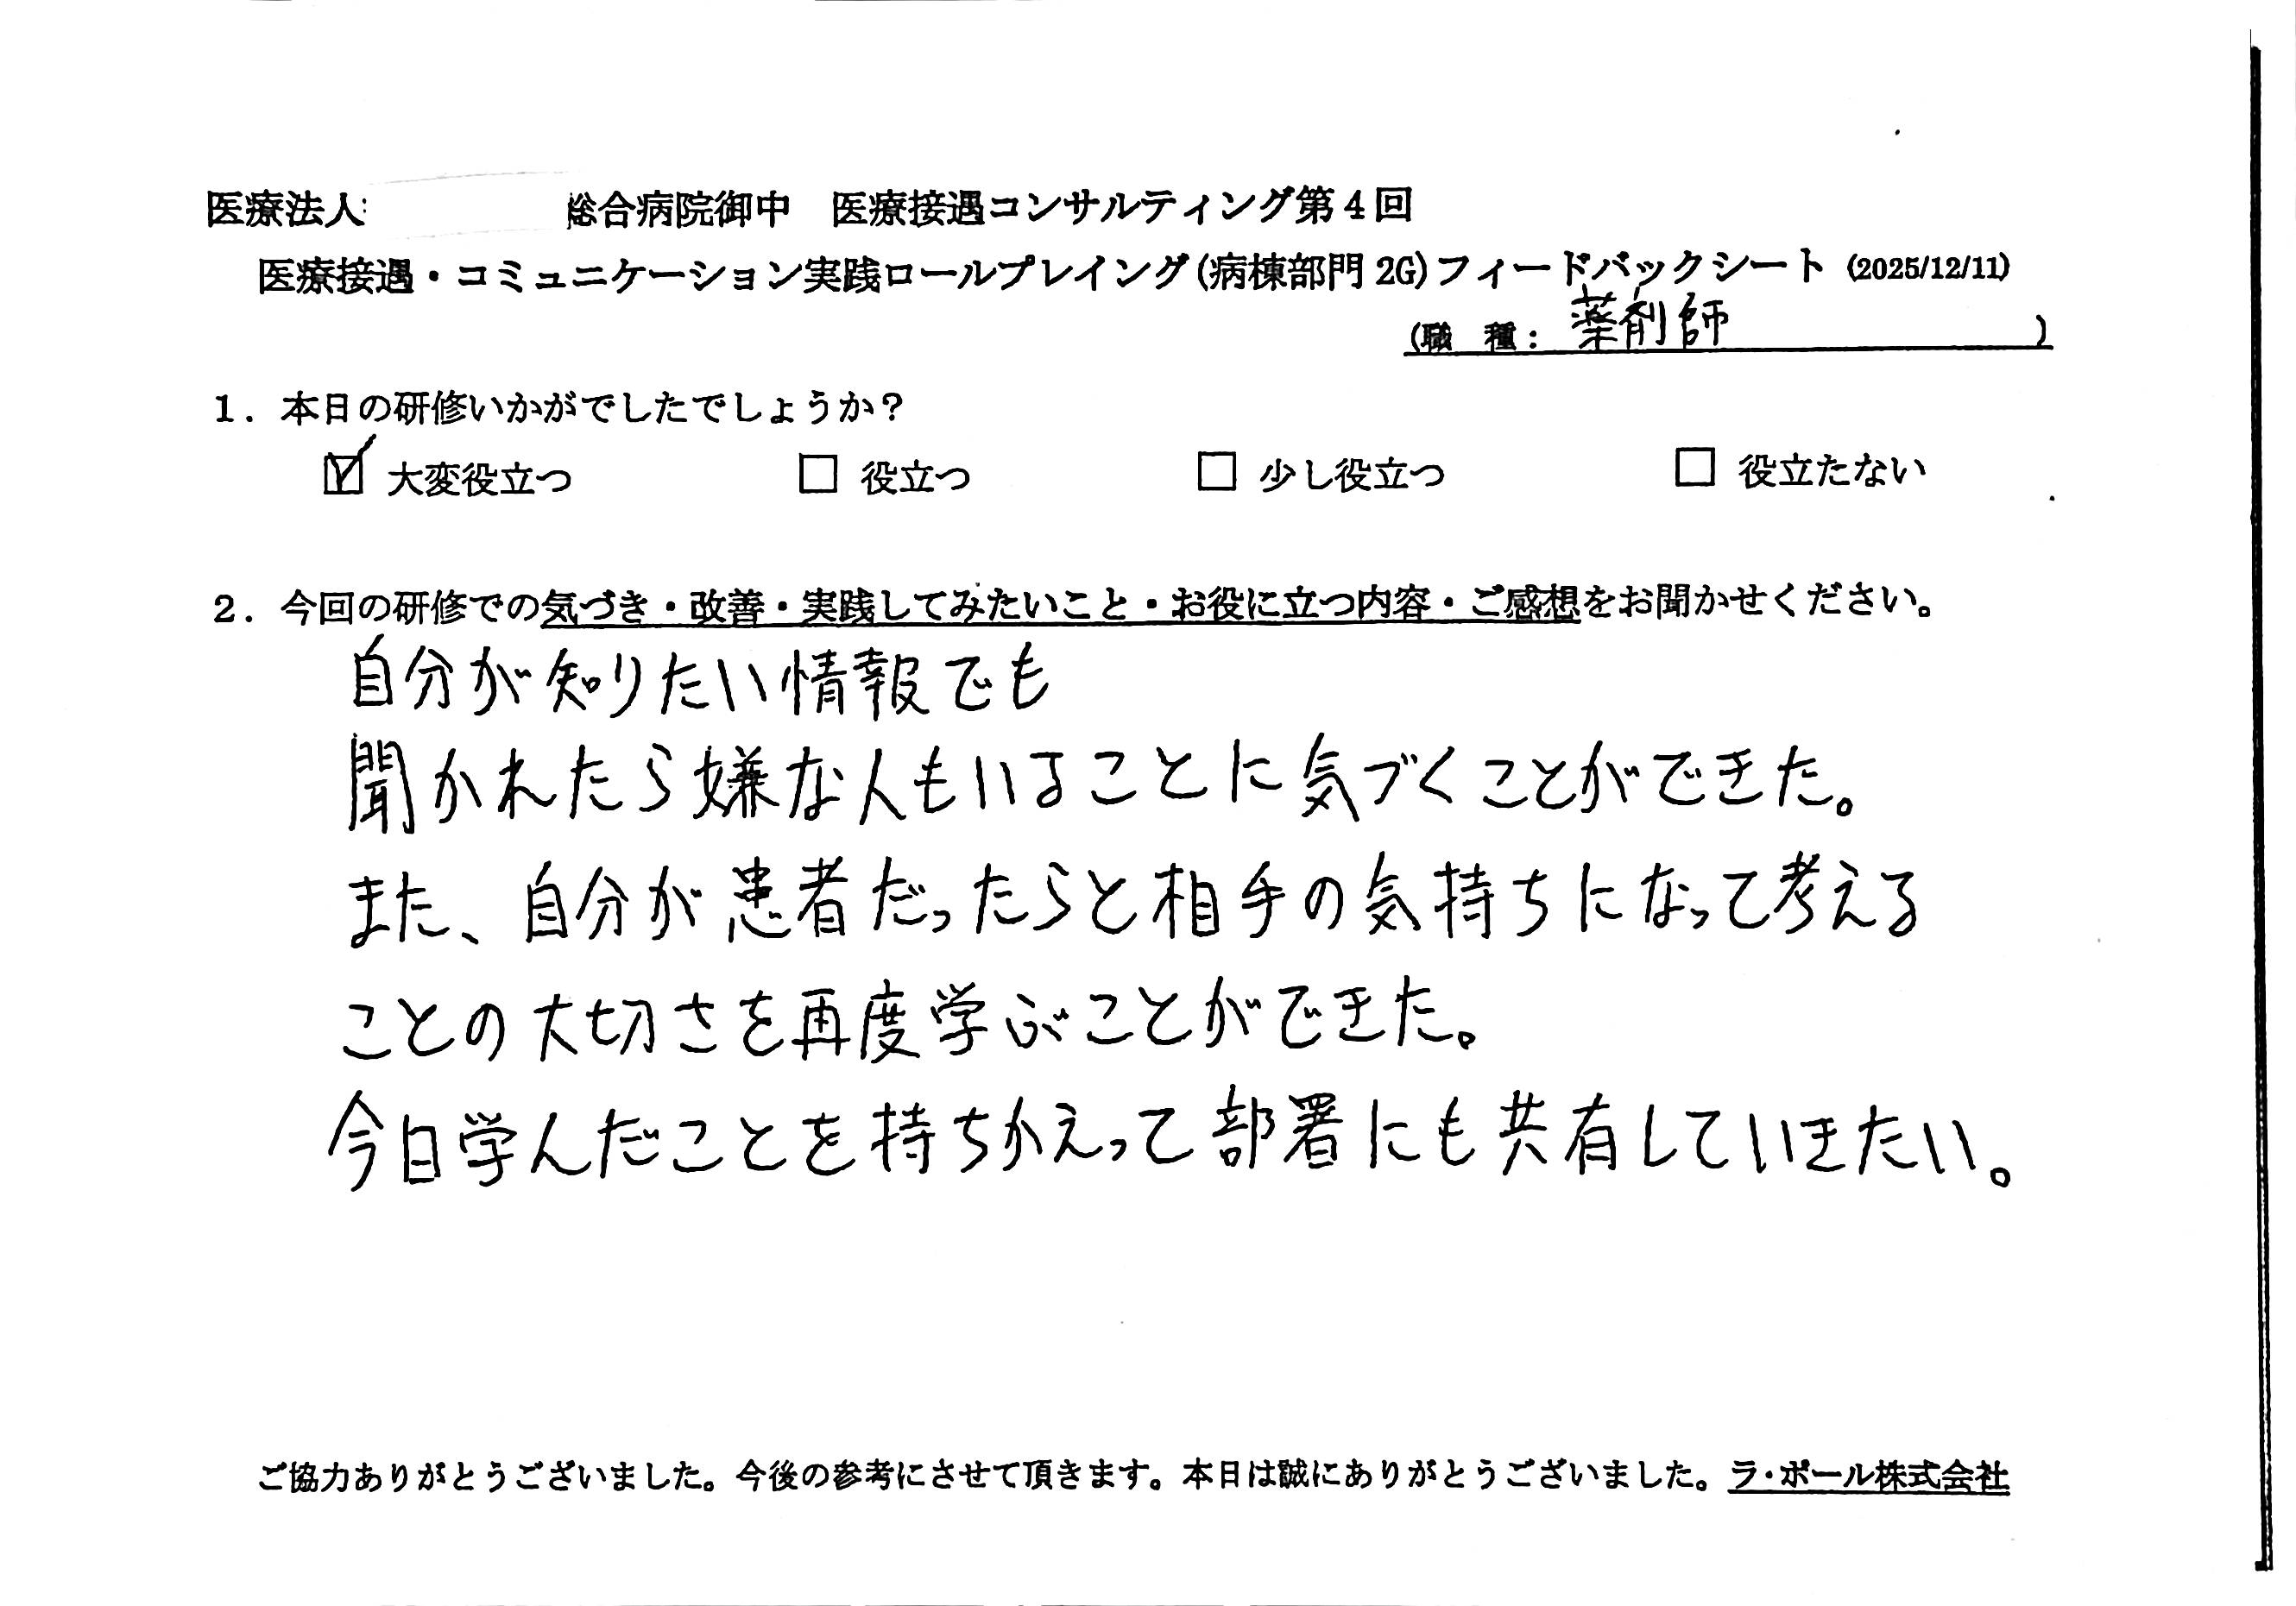 医療法人 総合病院御中 医療接遇コンサルティング第4回
医療接遇・コミュニケーション実践ロールプレイング(病棟部門2G)フィードバックシート (2025/12/11)
(職 種: 薬剤師 )
1. 本日の研修いかがでしたでしょうか?
☑ 大変役立つ □ 役立つ □ 少し役立つ □ 役立たない
2. 今回の研修での気づき・改善・実践してみたいこと・お役に立つ内容・ご感想をお聞かせください。
自分が知りたい情報でも
聞かれたら嫌な人もいることに気づくことができた。
また、自分が患者だったらと相手の気持ちになって考える
ことの大切さを再度学ぶことができた。
今日学んだことを持ちかえって部署にも共有していきたい。
ご協力ありがとうございました。今後の参考にさせて頂きます。本日は誠にありがとうございました。ラ・ポール株式会社